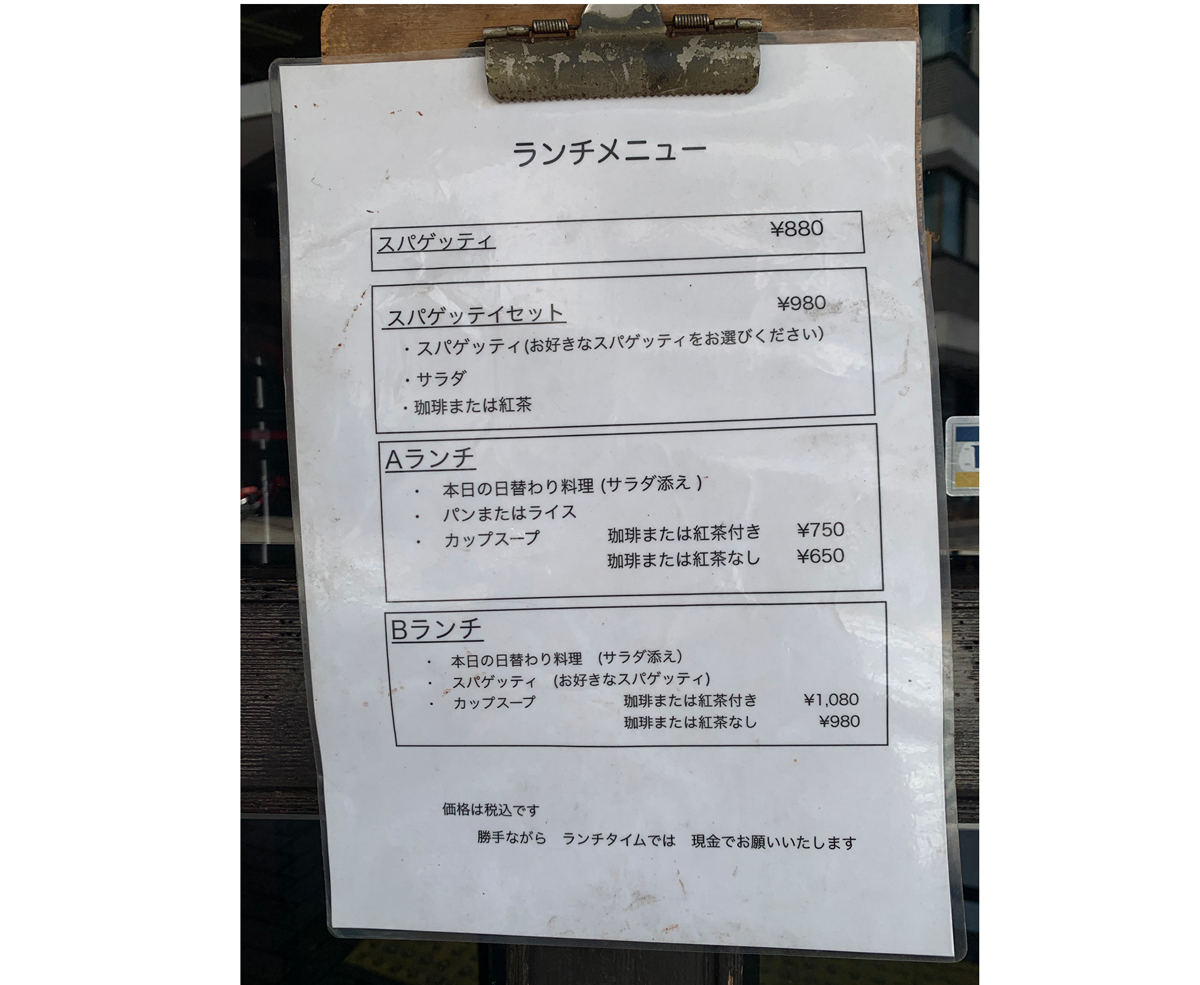 ランチメニュー
スパゲッティ ¥880
スパゲッテイセット ¥980
・スパゲッティ(お好きなスパゲッティをお選びください)
・サラダ
・珈琲または紅茶
Aランチ
・ 本日の日替わり料理 (サラダ添え )
・ パンまたはライス
・ カップスープ 珈琲または紅茶付き ¥750
珈琲または紅茶なし ¥650
Bランチ
・ 本日の日替わり料理 (サラダ添え)
・ スパゲッティ (お好きなスパゲッティ)
・ カップスープ 珈琲または紅茶付き ¥1,080
珈琲または紅茶なし ¥980
価格は税込です
勝手ながら ランチタイムでは 現金でお願いいたします